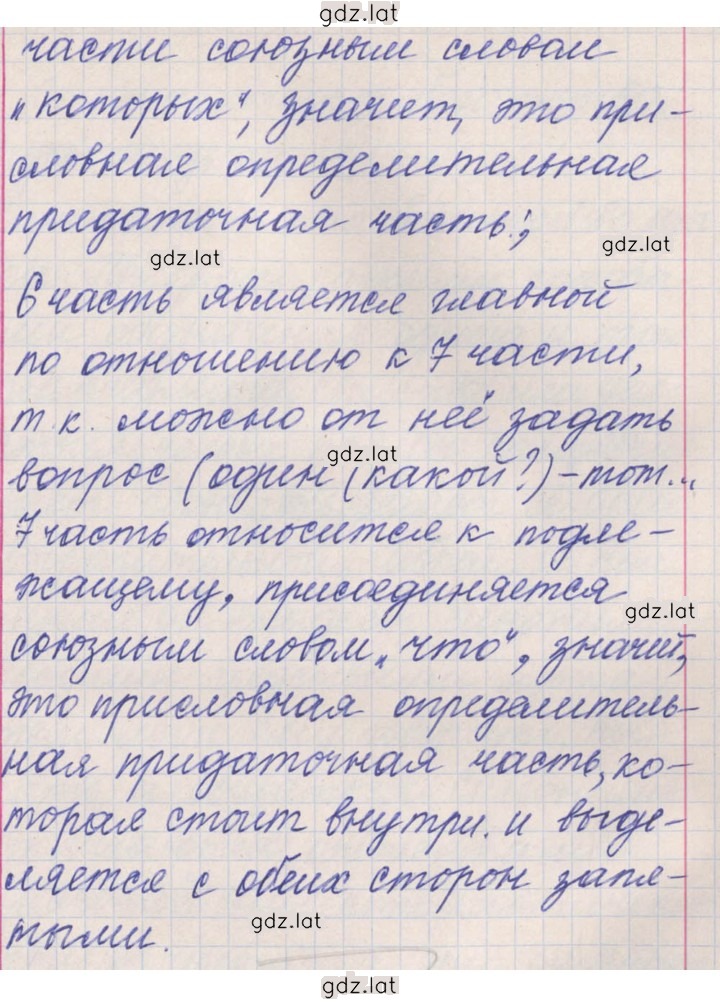 gdz.lat
части союзным словом
„которых“, значит, это при-
словная определительная
придаточная часть!;
gdz.lat
gdz.lat
6 часть является главной
по отношению к 7 части,
т.к. можно от неё задать
gdz.lat
вопрос (один (какой?) – тот...
7 часть относится к подле-
жащему, присоединяется
gdz.lat
союзным словом „что“, значит,
это присловная определитель-
ная придаточная часть, ко-
торая стоит внутри. и выде-
ляется с обеих сторон запя-
gdz.lat
тыми.
gdz.lat